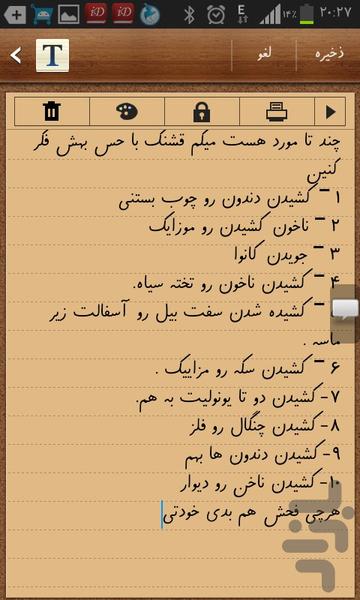 ۲۰:۲۷
۱۴٪
E
iD
iD
ذخیره
لغو
T
چند تا مورد هست میگم قشنگ با حس بهش فکر
کنین
۱ - کشیدن دندون رو چوب بستنی
۲ - ناخون کشیدن رو موزایک
۳ - جویدن کانوا
۴ - کشیدن ناخون رو تخته سیاه.
- کشیده شدن سفت بیل رو آسفالت زیر
ماسه .
۶ - کشیدن سکه رو مزاییک .
۷-کشیدن دو تا یونولیت به هم.
۸-کشیدن چنگال رو فلز
۹-کشیدن دندون ها بهم
۱۰-کشیدن ناخن رو دیوار
هرچی فحش هم بدی خودتی
بازار